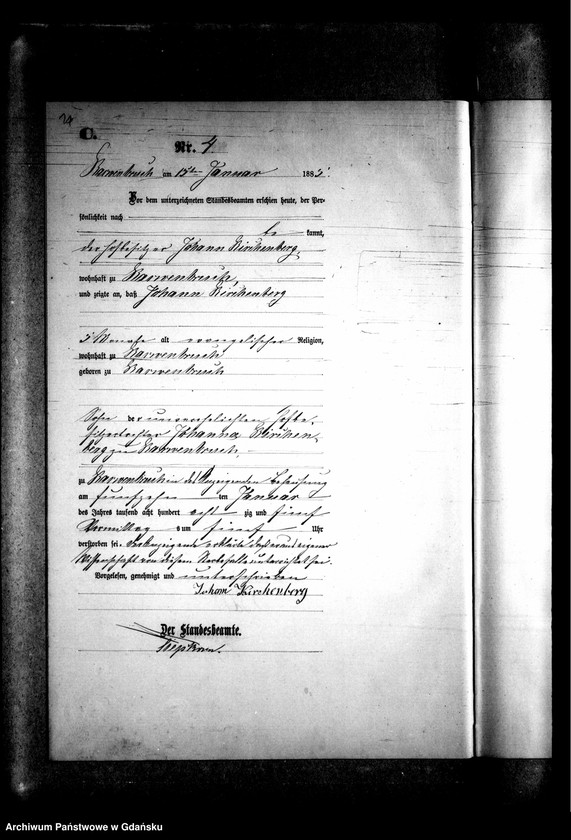 C.
Nr. 4
Karwenbruch am 15ten Januar 1885.
Vor dem unterzeichneten Standesbeamten erschien heute, der Per-
sönlichkeit nach
be kannt,
der Hofbesitzer Johann Kirchenberg,
wohnhaft zu Karwenbruch,
und zeigte an, daß Johann Kirchenberg
5 Monate alt evangelischer Religion,
wohnhaft zu Karwenbruch
geboren zu Karwenbruch
Sohn der unverehelichten Hofbe-
sitzertochter Johanna Kirchen-
berg zu Karwenbruch
zu Karwenbruch in des Anzeigenden Behausung
am fünfzehn ten Januar
des Jahres tausend acht hundert acht zig und fünf
Vormittag s um fünf Uhr
verstorben sei. Der Anzeigende erklärte daß er aus eigener
Wissenschaft von diesem Sterbefalle unterrichtet sei.
Vorgelesen, genehmigt und unterschrieben
Johann Kirchenberg
Der Standesbeamte.
Archiwum Państwowe w Gdańsku